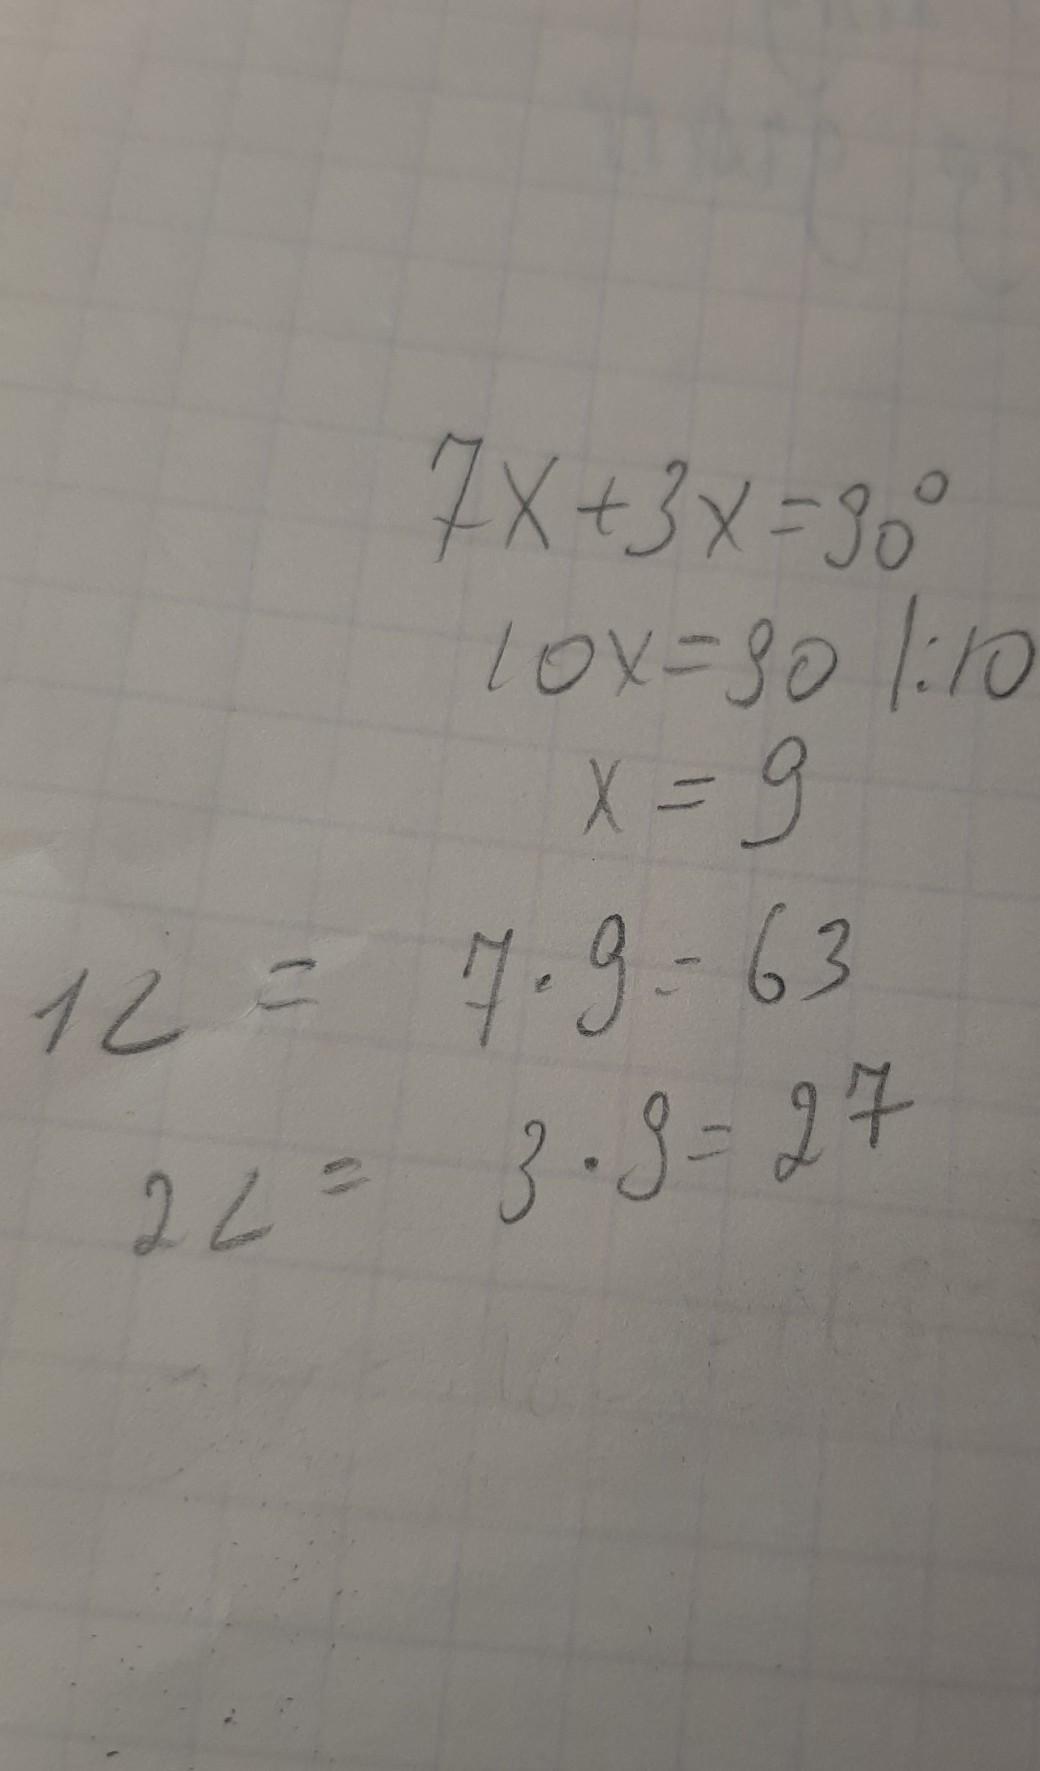 7x+3x=90°
10x=90 |:10
x=9
1∠ = 7·9=63
2∠ = 3·9=27